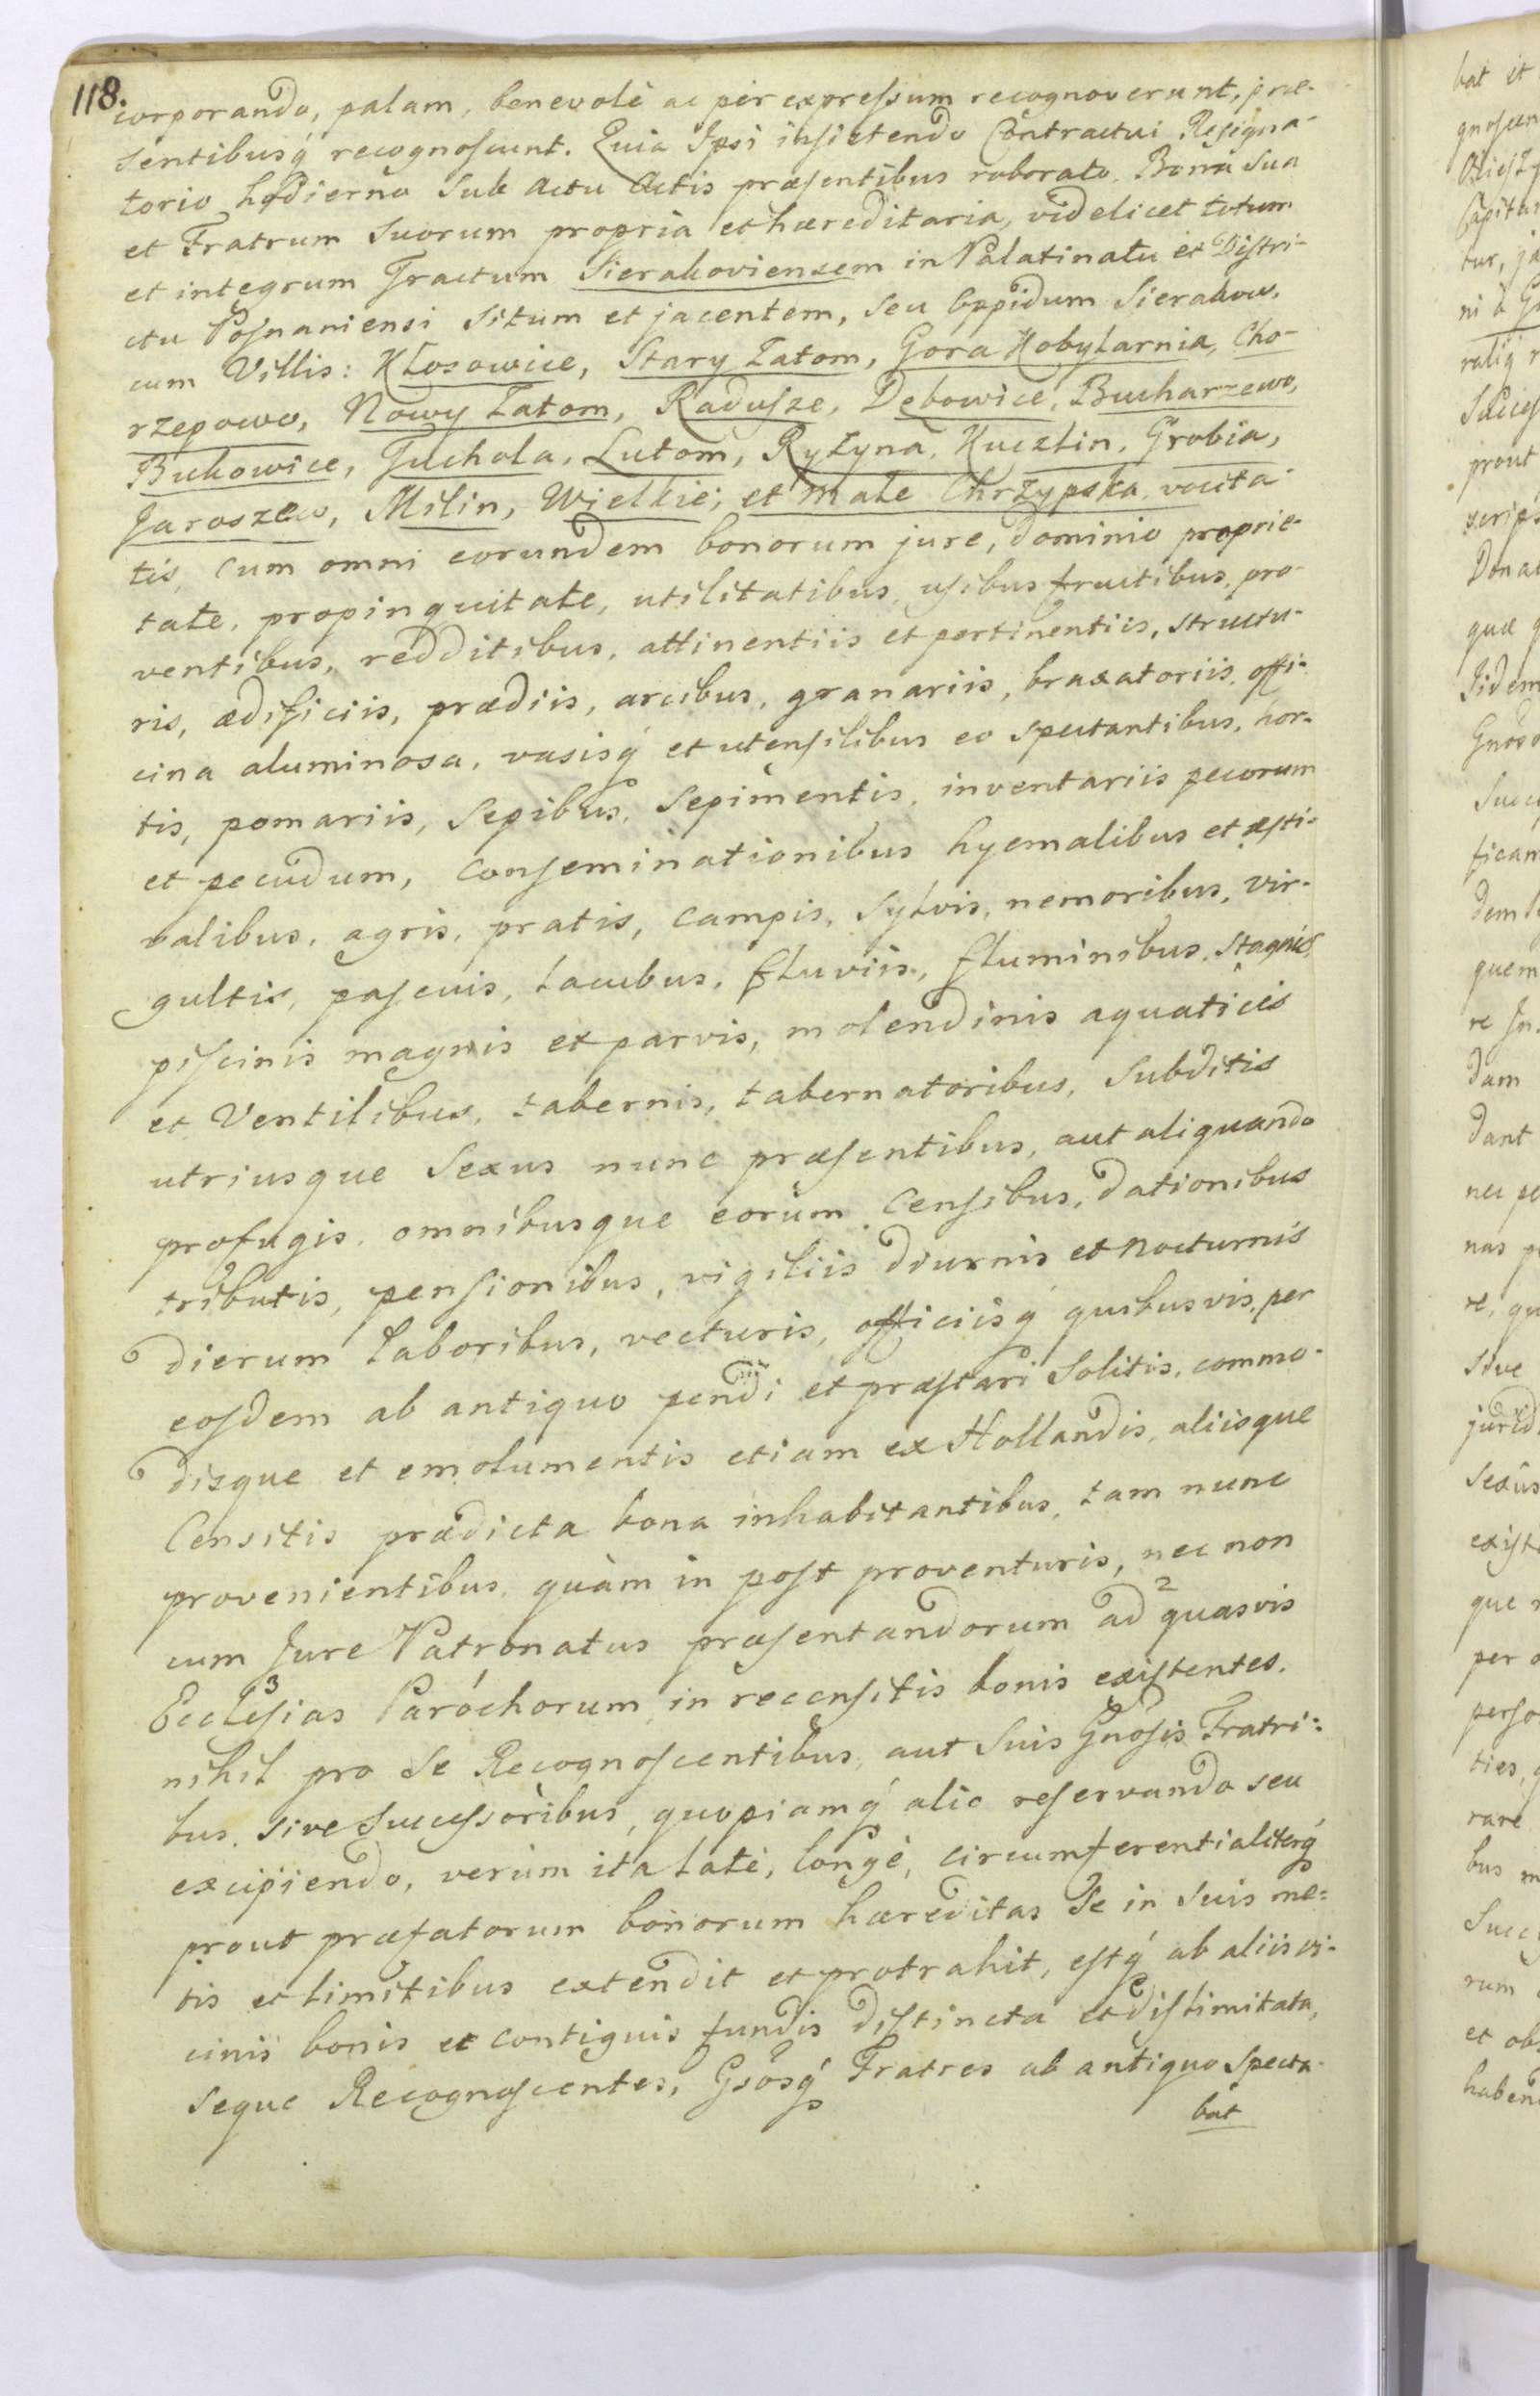 118.
corporando, palam, benevolè ac per expressum recognoverunt, præ-
sentibusq́ recognoscunt. Quia Ipsi insistendo Contractui Resigna-
torio hodierno Sub Actu Actis præsentibus roborato. Bona Sua
et Fratrum Suorum propria et hæreditaria, videlicet totum
et integrum Tractum Sierakoviensem in Palatinatu et Distri-
ctu Posnaniensi Situm et jacentem, seu Oppidum Sierakow.
cum Villis: Kłosowice, Stary Zatom, Gora Kobylarnia, Cho-
rzepowo, Nowy Zatom, Radusze, Dębowice, Bucharzewo,
Bukowice, Tuchola, Lutom, Ryżyna, Kuczlin, Grobia,
Jaroszew, Milin, Wielkie, et Małe Chrzypska vocita-
tis, Cum omni eorundem bonorum jure, dominio proprie-
tate, propinquitate, utilitatibus, usibus fructibus, pro-
ventibus, redditibus, attinentiis et pertinentiis, structu-
ris, ædificiis, prædiis, arcibus, granariis, braxatoriis, offi-
cina aluminosa, vasisq́ et utensilibus eo spectantibus, hor-
tis, pomariis, Sepibus, Sepimentis, inventariis pecorum
et pecudum, Conseminationibus hyemalibus et æsti-
valibus, agris, pratis, campis, Sylvis, nemoribus, vir-
gultis, pascuis, lacubus, fluviis, fluminibus, stagnis,
piscinis magnis et parvis, molendinis aquaticis
et Ventilibus, tabernis, tabernatoribus, Subditis
utriusque Sexus nunc præsentibus, aut aliquando
profugis, omnibusque eorum Censibus, dationibus
tributis, pensionibus, vigiliis diurnis et nocturnis
dierum laboribus, vecturis, officiisq́ quibusvis, per
eosdem ab antiquo pendi et præstari Solitis, commo-
disque et emolumentis etiam ex Hollandis, aliisque
Censitis prædicta bona inhabitantibus, tam nunc
provenientibus, quàm in post proventuris, nec non
cum Jure Patronatus præsentandorum ad 2 quasvis
Ecclesias 3 Parochorum in recensitis bonis existentes.
nihil pro Se Recognoscentibus, aut Suis Gnosis Fratri=
bus, sive Successoribus, quopiamq́ alio reservando seu
excipiendo, verùm ita latè, longè, circumferentialiterq́
prout præfatorum bonorum hæreditas Se in Suis me=
tis et limitibus extendit et protrahit, estq́ ab aliis vi-
cinis bonis et contiguis fundis distincta et dislimitata,
seque Recognoscentes, Gsosq́ Fratres ab antiquo specta-
bat